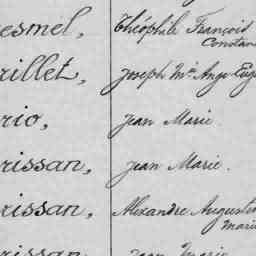 esmel, Théophile François
Constan
rillet, Joseph Mie Ange Eug
rio, Jean Marie.
rissan, Jean Marie.
rissan, Alexandre Augustin
Marie
rissan Jean Marie